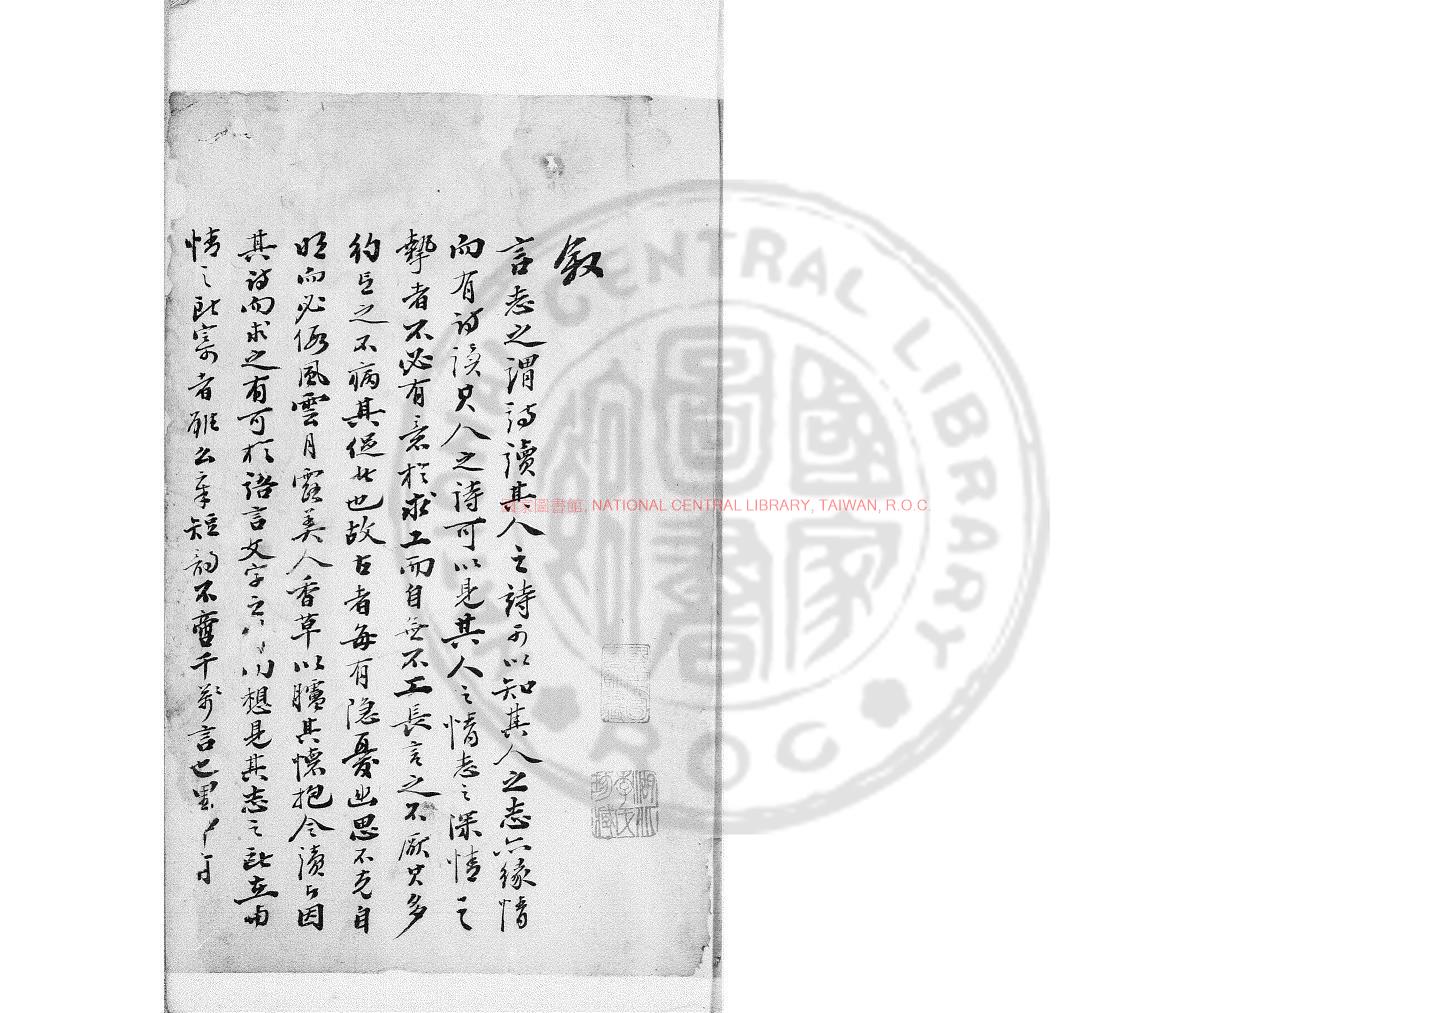 敘
言志之謂詩讀其人之詩可以知其人之志亦緣情
而有詩讀其人之詩可以見其人之情志之深情之
摯者不必有意於求工而自無不工長言之不厭其多
約言之不病其促此也故古者每有隐憂幽思不克自
明而必假風雲月露美人香草以攄其懷抱令讀者因
其詩而求之有可於語言文字之 間想見其志之所在與
情之所寄者雖么章短韵不啻千萬言也
國家圖書館, NATIONAL CENTRAL LIBRARY, TAIWAN, R.O.C.
CENTRAL LIBRARY
ROC